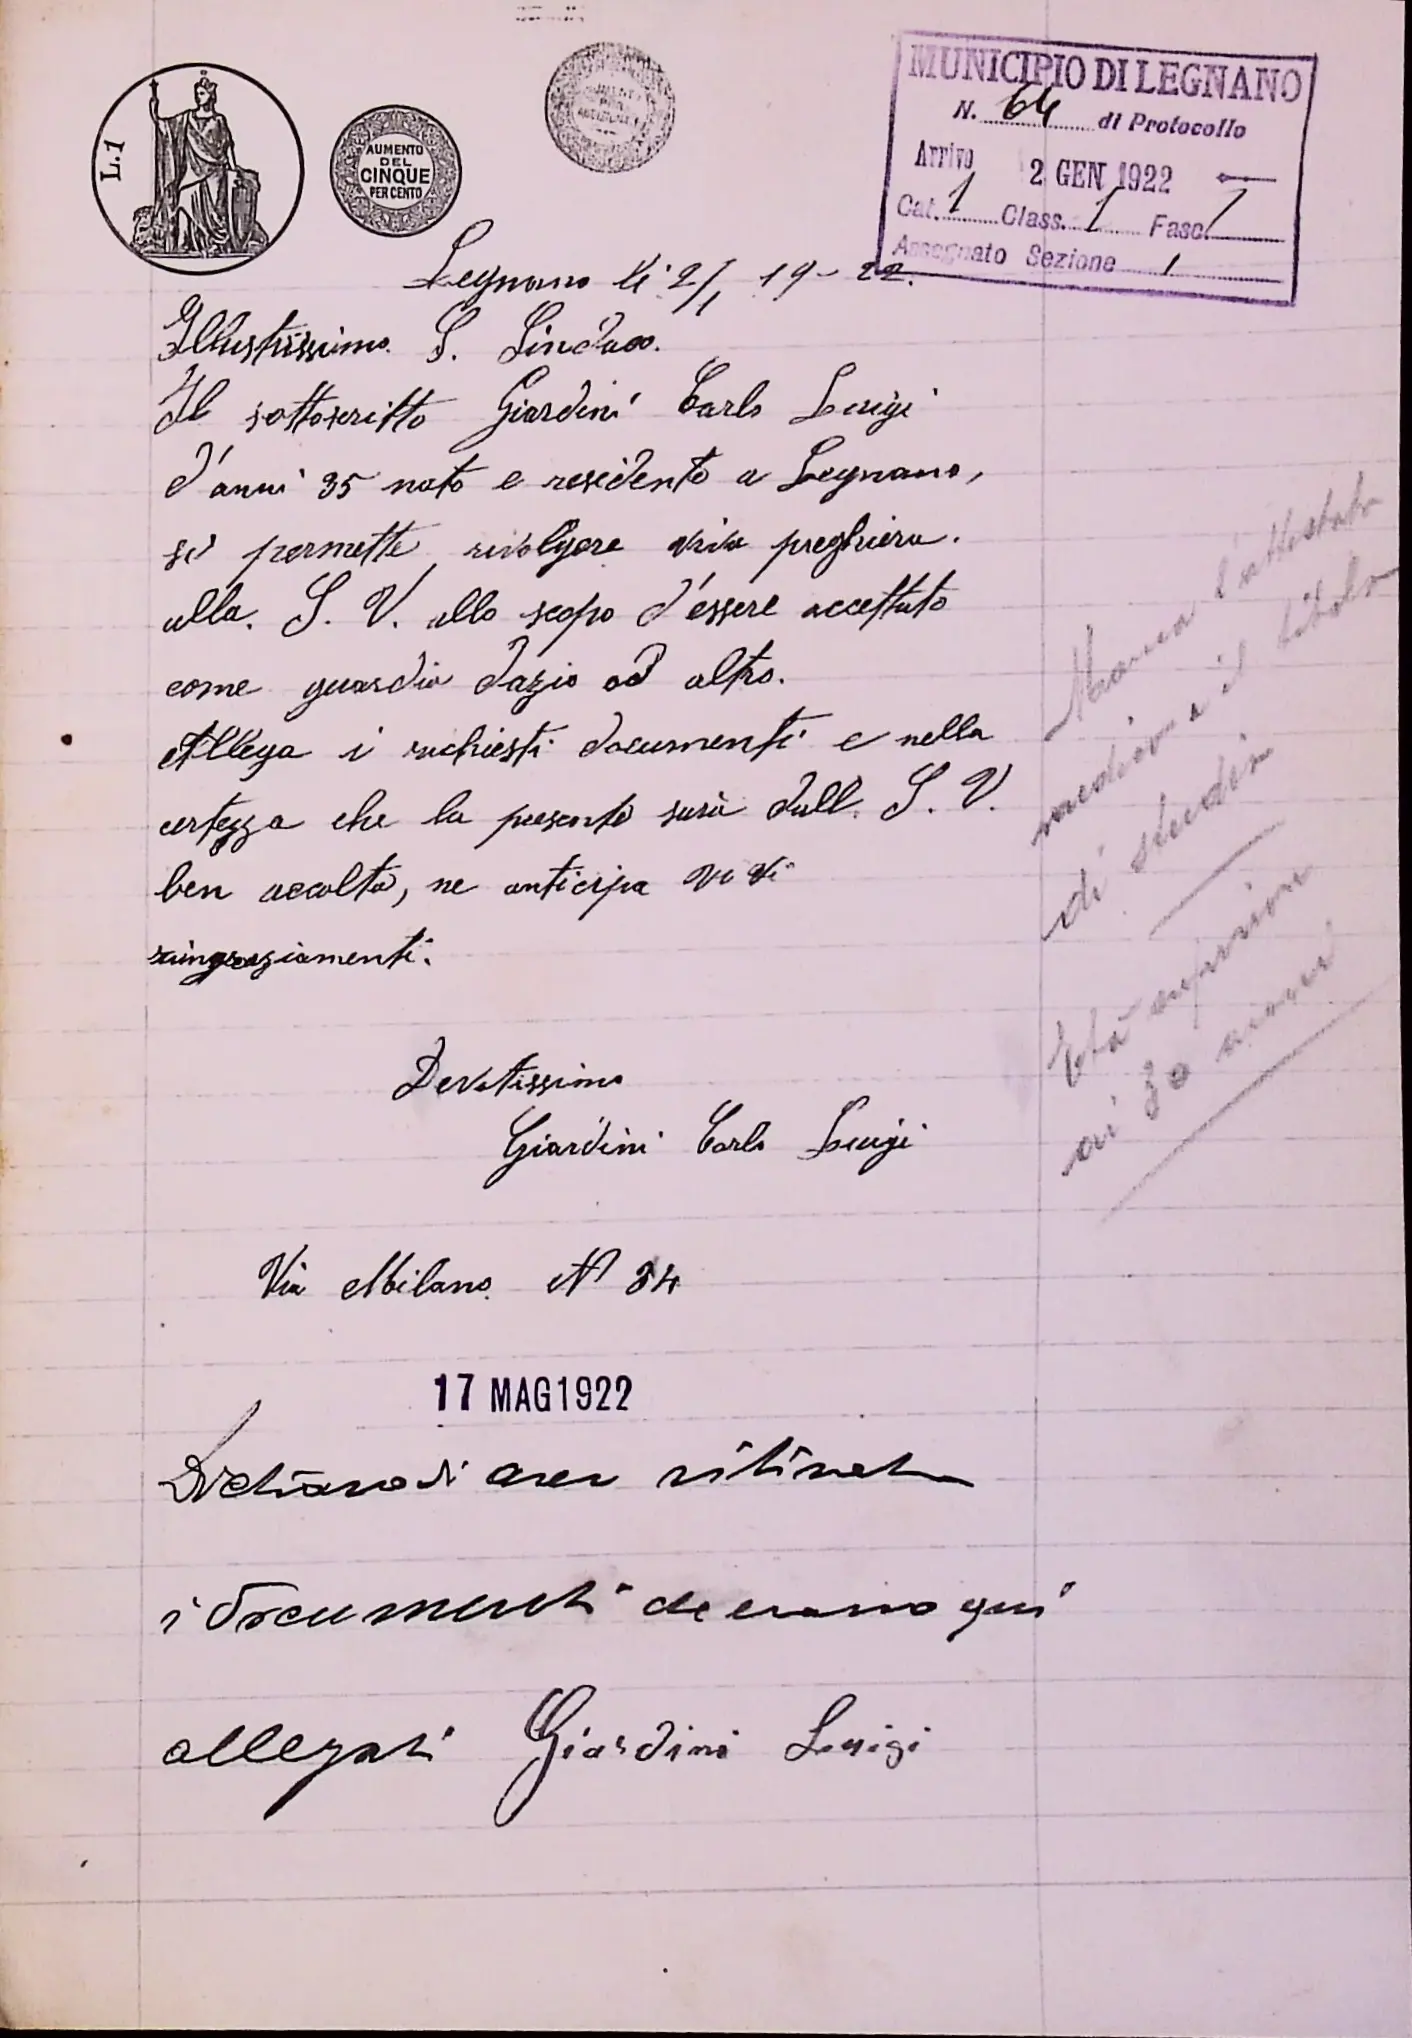 L.1
AUMENTO
DEL
CINQUE
PER CENTO
MUNICIPIO DI LEGNANO
N. 64 di Protocollo
Arrivo 2 GEN 1922
Cat. 1 Class. 1 Fasc. 7
Assegnato Sezione 1
Legnano li 2/1 19-22.
Illustrissimo. S. Sindaco.
Il sottoscritto Giardini Carlo Luigi
d'anni 35 nato e residente a Legnano,
si permette rivolgere viva preghiera.
alla. S. V. allo scopo d'essere accettato
come guardia dazio od altro.
Allega i richiesti documenti e nella
certezza che la presente sarà dall. S. V.
ben accolta, ne anticipa vivi
ringraziamenti.
Devotissimo
Giardini Carlo Luigi
Via Milano. N° 34
Manca l'attestato
medico e il titolo
di studio
Età superiore
ai 30 anni
17 MAG 1922
Dichiaro di aver ritirato
i documenti che erano qui
allegati Giardini Luigi